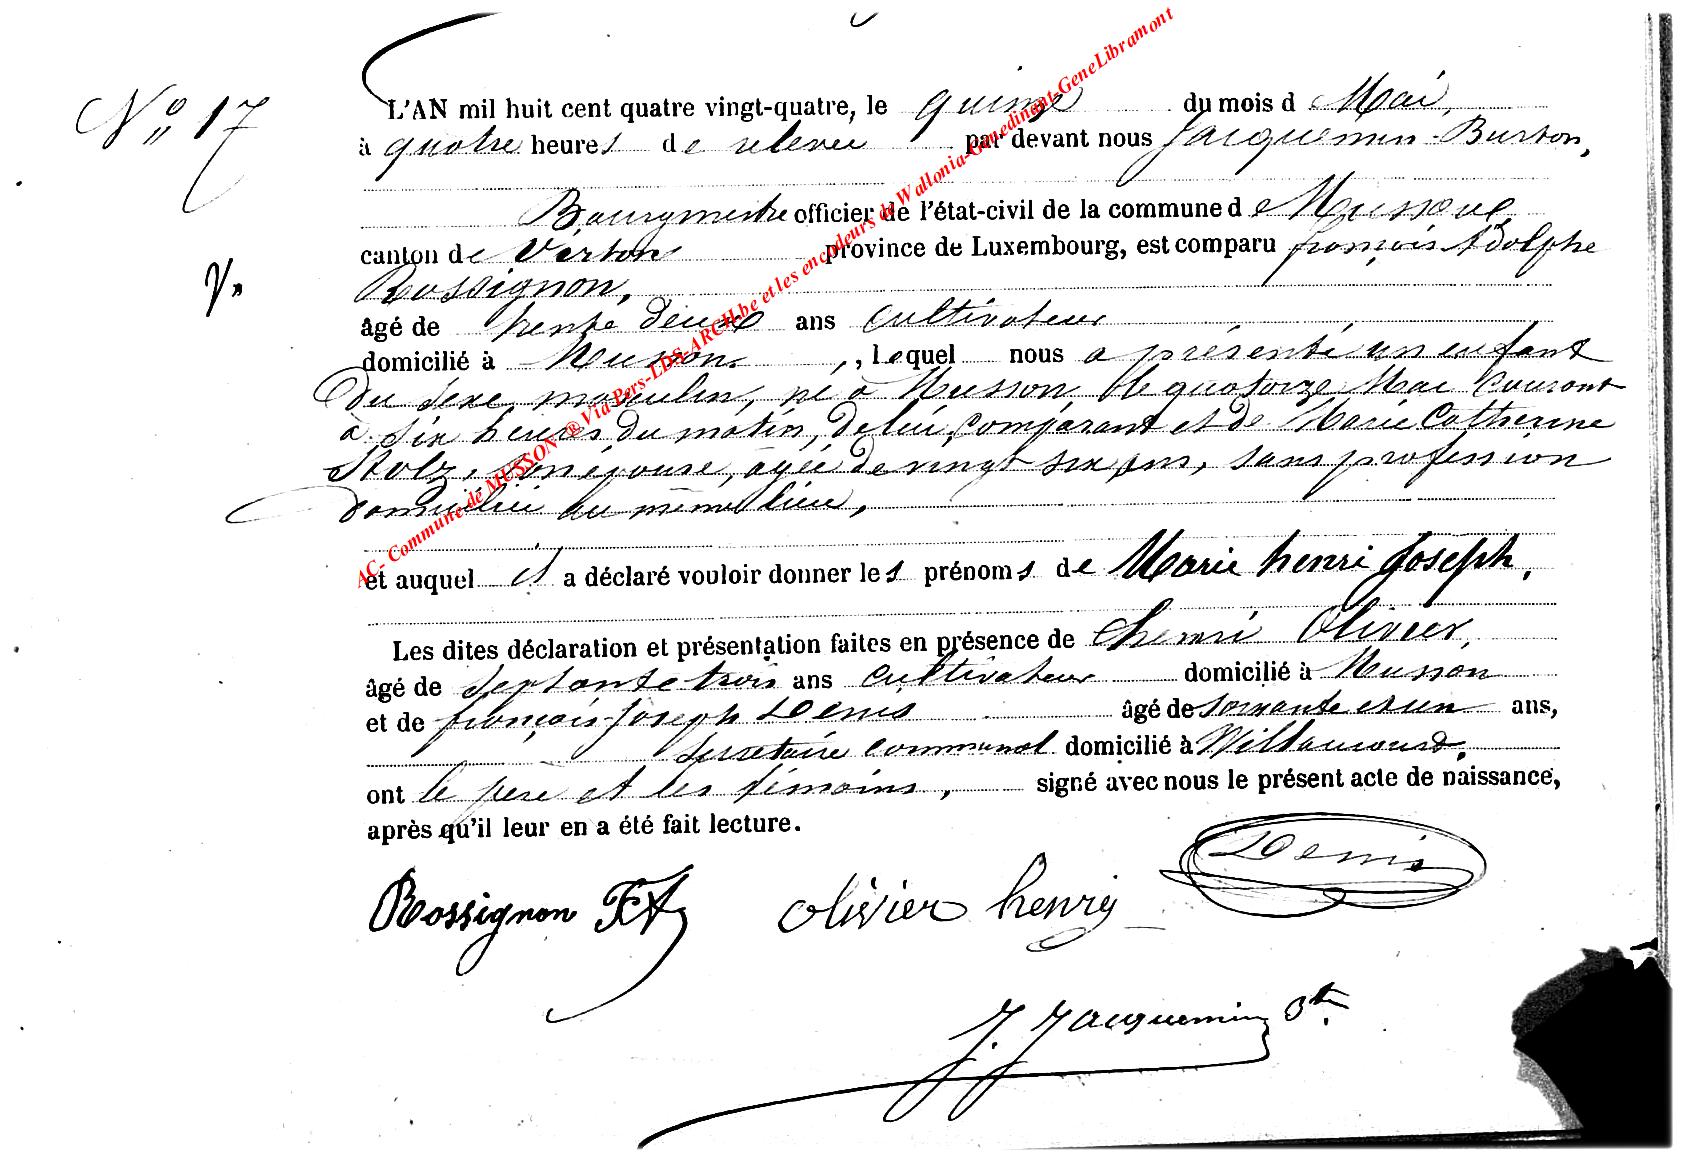 N° 17
L'AN mil huit cent quatre vingt-quatre, le quinze du mois d Mai,
à quatre heures de relevée par devant nous Jacquemin-Burton,
Bourgmestre officier de l'état-civil de la commune de Musson,
canton de Virton province de Luxembourg, est comparu françois Adolphe
Rossignon,
âgé de trente deux ans cultivateur
domicilié à Musson. , , lequel nous a présenté un enfant
du sexe masculin, né à Musson, le quatorze Mai courant
à six heures du matin, de lui, comparant et de Marie Catherine
Stolz, son épouse, âgée de vingt six ans, sans profession
domiciliée au même lieu,
et auquel il a déclaré vouloir donner les prénoms de Marie henri Joseph.
Les dites déclaration et présentation faites en présence de henri Olivier,
âgé de septante trois ans cultivateur domicilié à Musson
et de françois-Joseph Denis âgé de soixante et un ans,
secretaire communal domicilié à Willancourt.
ont le père et les témoins, signé avec nous le présent acte de naissance,
après qu'il leur en a été fait lecture.
Denis
Rossignon FA olivier henry
J. Jacquemin Bt.
AC- Commune de MUSSON ® Via Pers-LDS-ARCH.be et les encodeurs de Wallonia-Genedinant-GeneLibramont